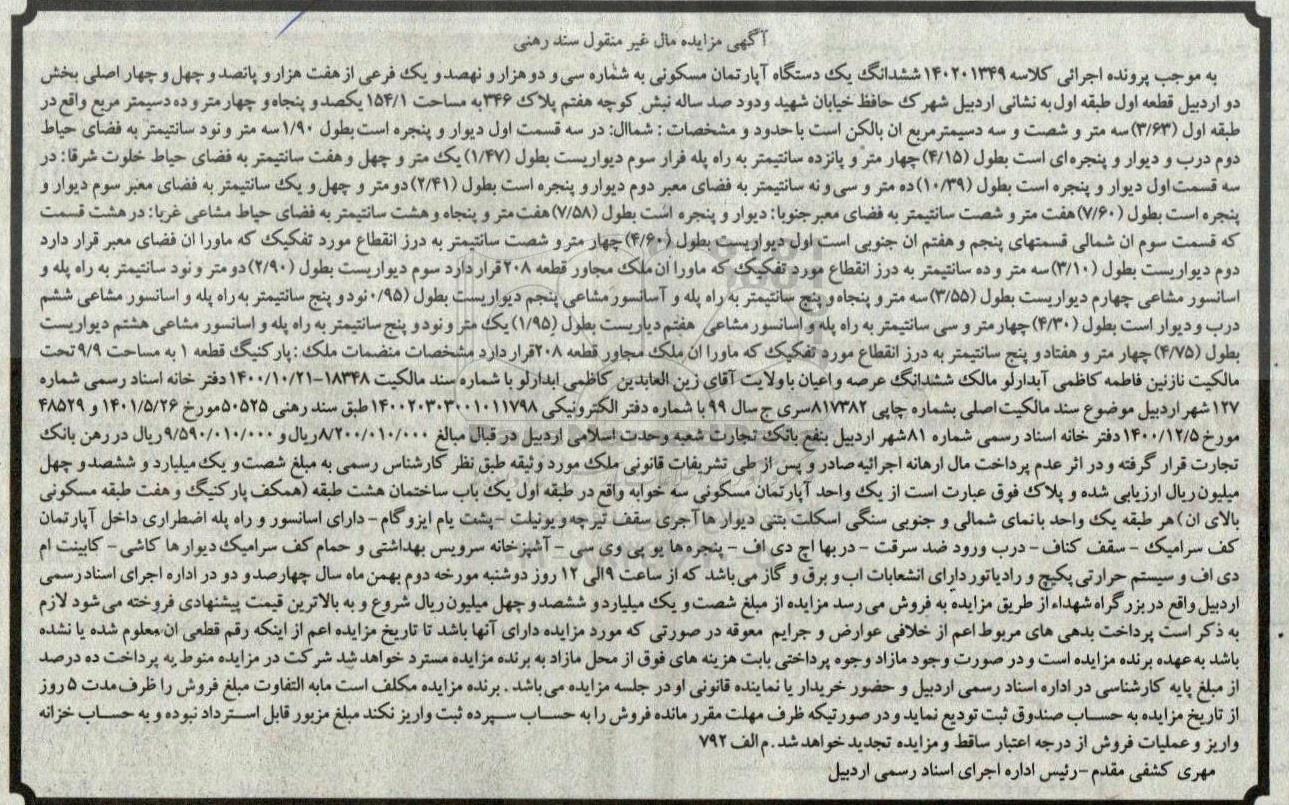 آگهی مزایده مال غیر منقول سند رهنی
به موجب پرونده اجرائی کلاسه ۱۴۰۲۰۱۳۴۹ ششدانگ یک دستگاه آپارتمان مسکونی به شماره سی و دو هزار و نهصد و یک فرعی از هفت هزار و پانصد و چهل و چهار اصلی بخش
دو اردبیل قطعه اول طبقه اول به نشانی اردبیل شهرک حافظ خیابان شهید ودود صد ساله نبش کوچه هفتم پلاک ۳۴۶ به مساحت ۱۵۴/۱ یکصد و پنجاه و چهار متر و ده دسیمتر مربع واقع در
طبقه اول (۳/۶۳) سه متر و شصت و سه دسیمترمربع ان بالکن است با حدود و مشخصات : شماال: در سه قسمت اول دیوار و پنجره است بطول ۱/۹۰ سه متر و نود سانتیمتر به فضای حیاط
دوم درب و دیوار و پنجره ای است بطول (۴/۱۵) چهار متر و پانزده سانتیمتر به راه پله فرار سوم دیواریست بطول (۱/۴۷) یک متر و چهل و هفت سانتیمتر به فضای حیاط خلوت شرقا: در
سه قسمت اول دیوار و پنجره است بطول (۱۰/۳۹) ده متر و سی و نه سانتیمتر به فضای معبر دوم دیوار و پنجره است بطول (۲/۴۱) دو متر و چهل و یک سانتیمتر به فضای معبر سوم دیوار و
پنجره است بطول (۷/۶۰) هفت متر و شصت سانتیمتر به فضای معبر جنوبا: دیوار و پنجره است بطول (۷/۵۸) هفت متر و پنجاه و هشت سانتیمتر به فضای حیاط مشاعی غربا: در هشت قسمت
که قسمت سوم ان شمالی قسمتهای پنجم و هفتم ان جنوبی است اول دیواریست بطول (۴/۶۰) چهار متر و شصت سانتیمتر به درز انقطاع مورد تفکیک که ماورا ان فضای معبر قرار دارد
دوم دیواریست بطول (۳/۱۰) سه متر و ده سانتیمتر به درز انقطاع مورد تفکیک که ماورا ان ملک مجاور قطعه ۲۰۸ قرار دارد سوم دیواریست بطول (۲/۹۰) دو متر و نود سانتیمتر به راه پله و
اسانسور مشاعی چهارم دیواریست بطول (۳/۵۵) سه متر و پنجاه و پنج سانتیمتر به راه پله و آسانسور مشاعی پنجم دیواریست بطول (۰/۹۵ نود و پنج سانتیمتر به راه پله و اسانسور مشاعی ششم
درب و دیوار است بطول (۴/۳۰) چهار متر و سی سانتیمتر به راه پله و اسانسور مشاعی هفتم دیاریست بطول (۱/۹۵) یک متر و نود و پنج سانتیمتر به راه پله و اسانسور مشاعی هشتم دیواریست
بطول (۴/۷۵) چهار متر و هفتاد و پنج سانتیمتر به درز انقطاع مورد تفکیک که ماورا ان ملک مجاور قطعه ۲۰۸ قرار دارد مشخصات منضمات ملک : پارکنیگ قطعه ۱ به مساحت ۹/۹ تحت
مالکیت نازنین فاطمه کاظمی آبدارلو مالک ششدانگ عرصه و اعیان با ولایت آقای زین العابدین کاظمی ابدارلو با شماره سند مالکیت ۱۸۳۴۸-۱۴۰۰/۱۰/۲۱ دفتر خانه اسناد رسمی شماره
۱۲۷ شهر اردبیل موضوع سند مالکیت اصلی بشماره چاپی ۸۱۷۳۸۲ سری ج سال ۹۹ با شماره دفتر الکترونیکی ۱۴۰۰۲۰۳۰۳۰۰۱۰۱۱۷۹۸ طبق سند رهنی ۵۰۵۲۵ مورخ ۱۴۰۱/۵/۲۶ و ۴۸۵۲۹
مورخ ۱۴۰۰/۱۲/۵ دفتر خانه اسناد رسمی شماره ۸۱ شهر اردبیل بنفع بانک تجارت شعبه وحدت اسلامی اردبیل در قبال مبالغ ۸/۲۰۰/۰۱۰/۰۰۰ ریال و ۹/۵۹۰/۰۱۰/۰۰۰ ریال در رهن بانک
تجارت قرار گرفته و در اثر عدم پرداخت مال ارهانه اجرائیه صادر و پس از طی تشریفات قانونی ملک مورد وثیقه طبق نظر کارشناس رسمی به مبلغ شصت و یک میلیارد و ششصد و چهل
میلیون ریال ارزیابی شده و پلاک فوق عبارت است از یک واحد آپارتمان مسکونی سه خوابه واقع در طبقه اول یک باب ساختمان هشت طبقه (همکف پارکنیگ و هفت طبقه مسکونی
بالای ان) هر طبقه یک واحد با نمای شمالی و جنوبی سنگی اسکلت بتنی دیوار ها آجری سقف تیرچه و یونیلت - پشت یام ایزو گام - دارای اسانسور و راه پله اضطراری داخل آپارتمان
کف سرامیک - سقف کناف - درب ورود ضد سرقت - دربها اچ دی اف - پنجره ها یو پی وی سی - آشپزخانه سرویس بهداشتی و حمام کف سرامیک دیوار ها کاشی - کابینت ام
دی اف و سیستم حرارتی پکیچ و رادیاتور دارای انشعابات اب و برق و گاز می باشد که از ساعت ۹ الی ۱۲ روز دوشنبه مورخه دوم بهمن ماه سال چهارصد و دو در اداره اجرای اسناد رسمی
اردبیل واقع در بزرگراه شهداء از طریق مزایده به فروش می رسد مزایده از مبلغ شصت و یک میلیارد و ششصد و چهل میلیون ریال شروع و به بالاترین قیمت پیشنهادی فروخته می شود لازم
به ذکر است پرداخت بدهی های مربوط اعم از خلافی عوارض و جرایم معوقه در صورتی که مورد مزایده دارای آنها باشد تا تاریخ مزایده اعم از اینکه رقم قطعی ان معلوم شده یا نشده
باشد به عهده برنده مزایده است و در صورت وجود مازاد وجوه پرداختی بابت هزینه های فوق از محل مازاد به برنده مزایده مسترد خواهد شد شرکت در مزایده منوط به پرداخت ده درصد
از مبلغ پایه کارشناسی در اداره اسناد رسمی اردبیل و حضور خریدار یا نماینده قانونی او در جلسه مزایده می باشد . برنده مزایده مکلف است مابه التفاوت مبلغ فروش را ظرف مدت ۵ روز
از تاریخ مزایده به حساب صندوق ثبت تودیع نماید و در صورتیکه ظرف مهلت مقرر مانده فروش را به حساب سپرده ثبت واریز نکند مبلغ مزبور قابل استرداد نبوده و به حساب خزانه
واریز و عملیات فروش از درجه اعتبار ساقط و مزایده تجدید خواهد شد . م الف ۷۹۲
مهری کشفی مقدم - رئیس اداره اجرای اسناد رسمی اردبیل